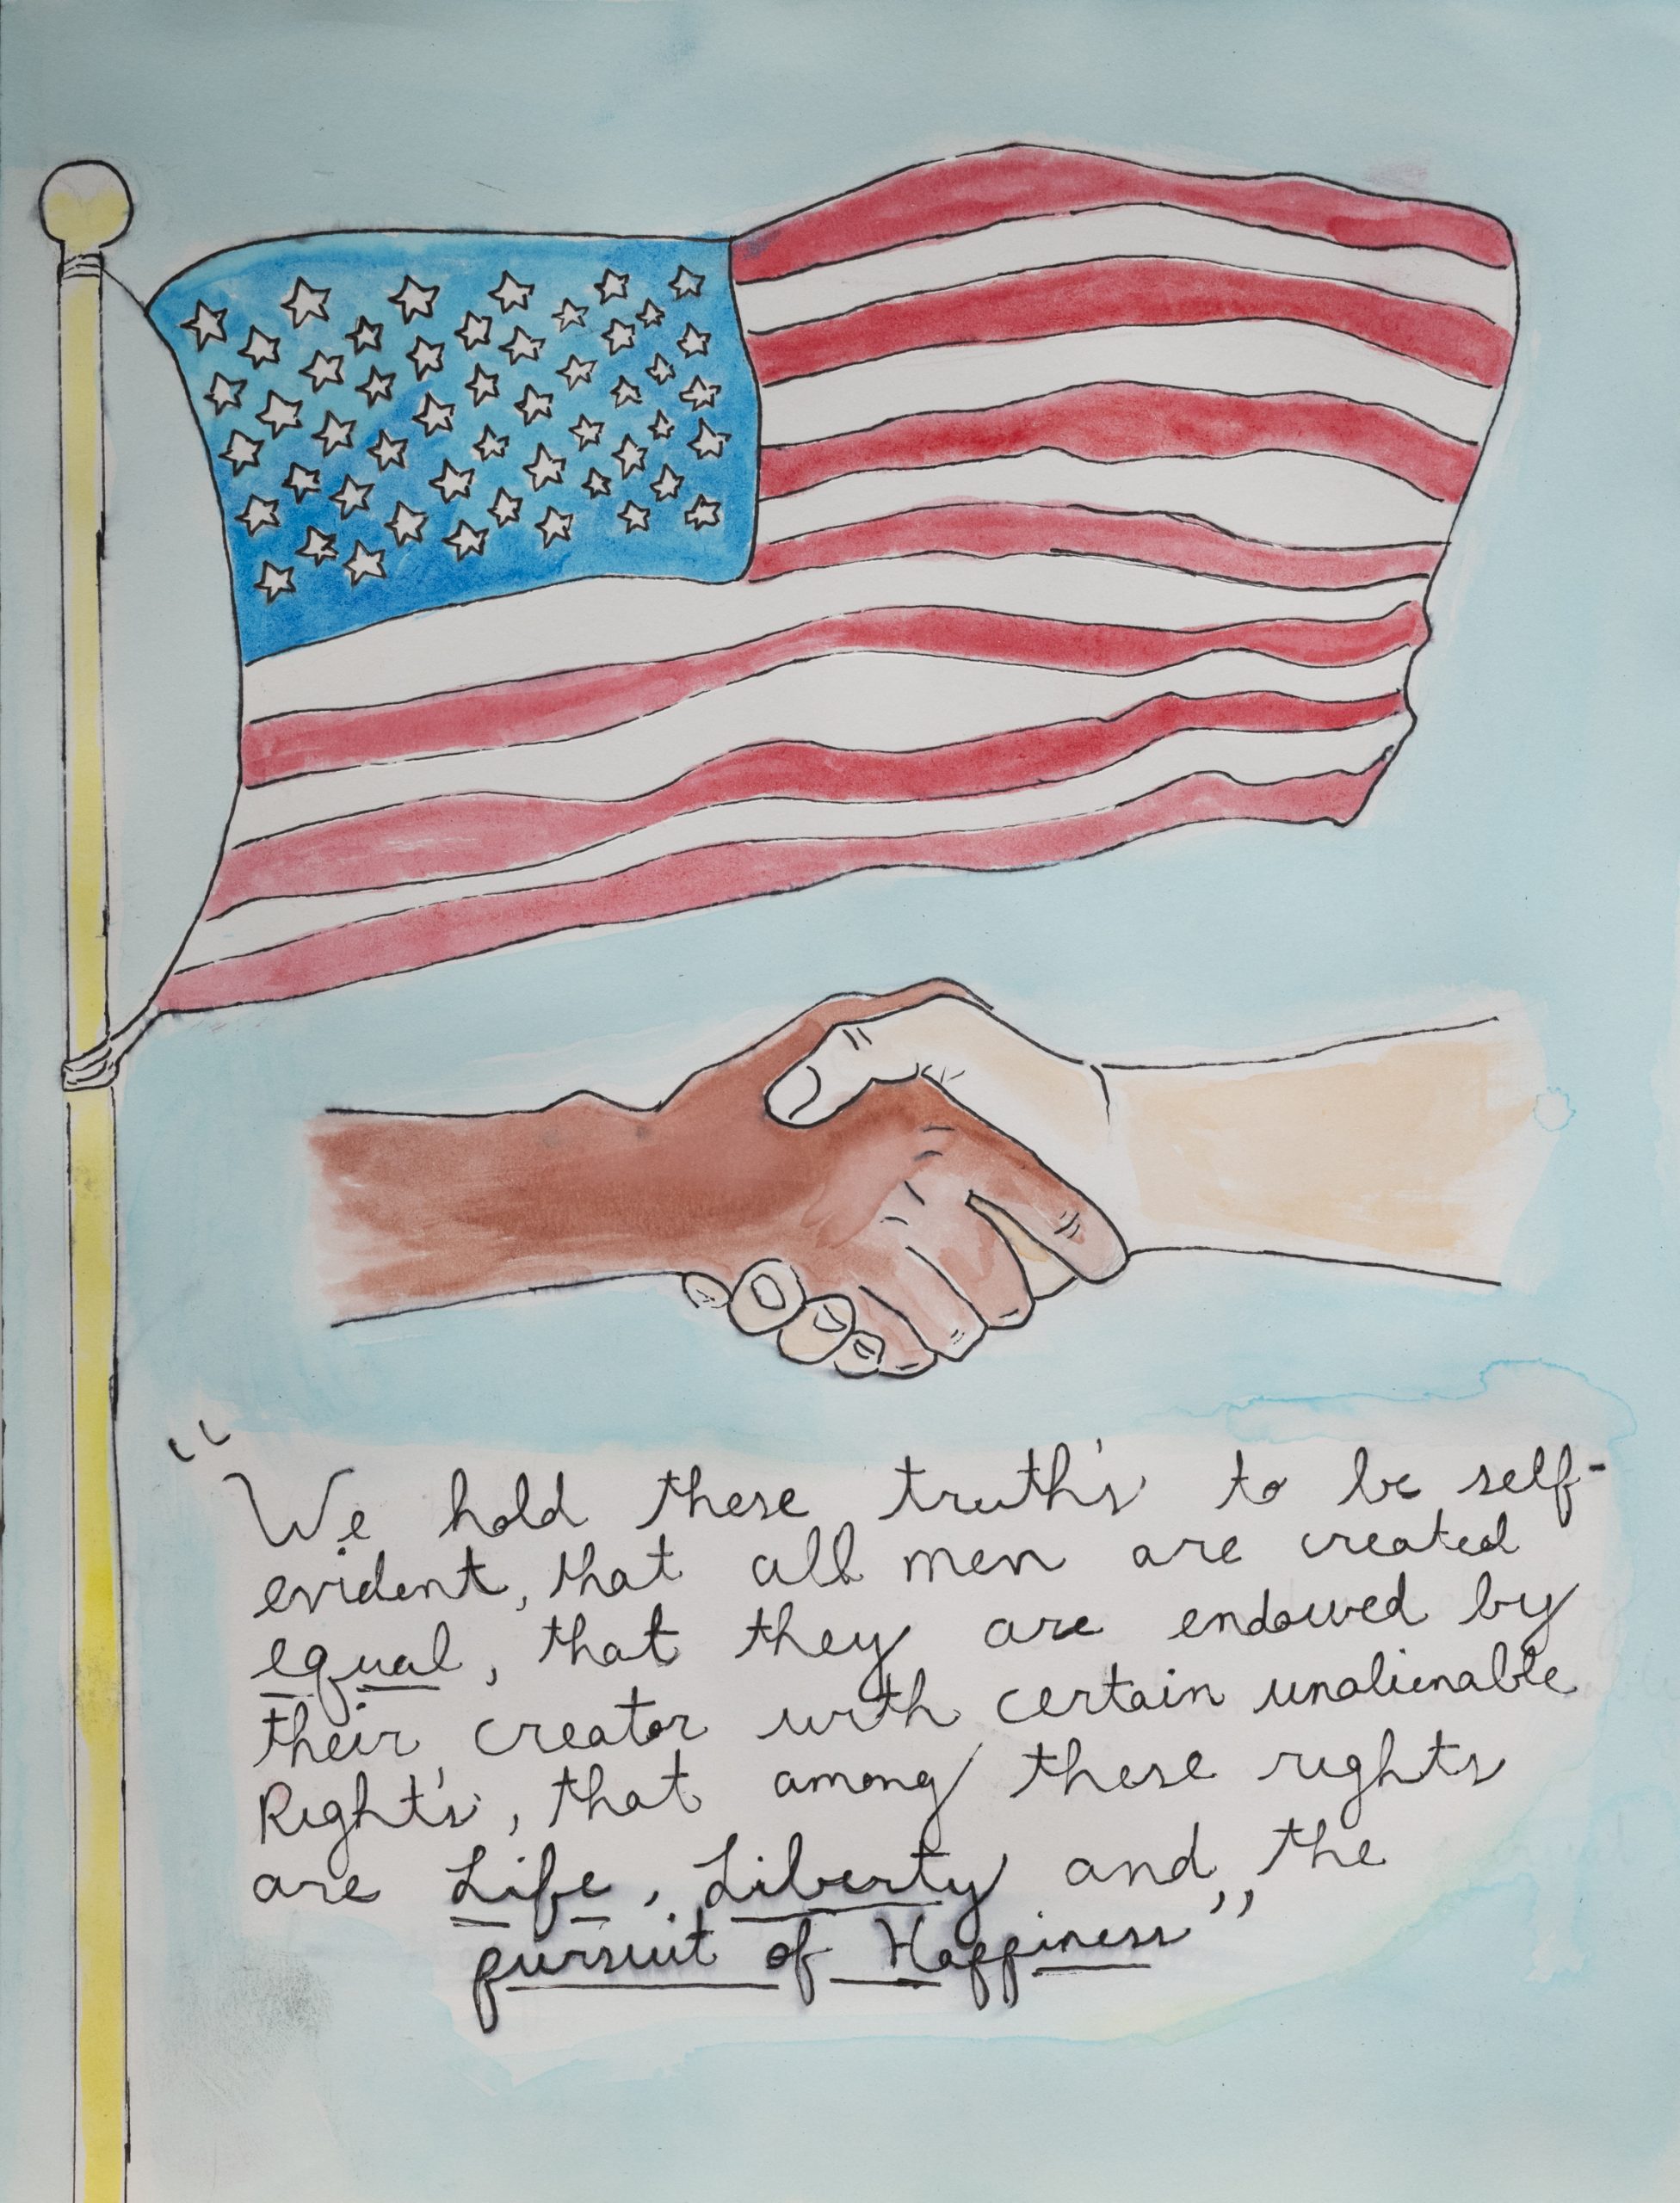 "We hold these truth's to be self-
evident, that all men are created
equal, that they are endowed by
their creator with certain unalienable
Right's, that among these rights
are Life, Liberty and the
pursuit of Happiness"